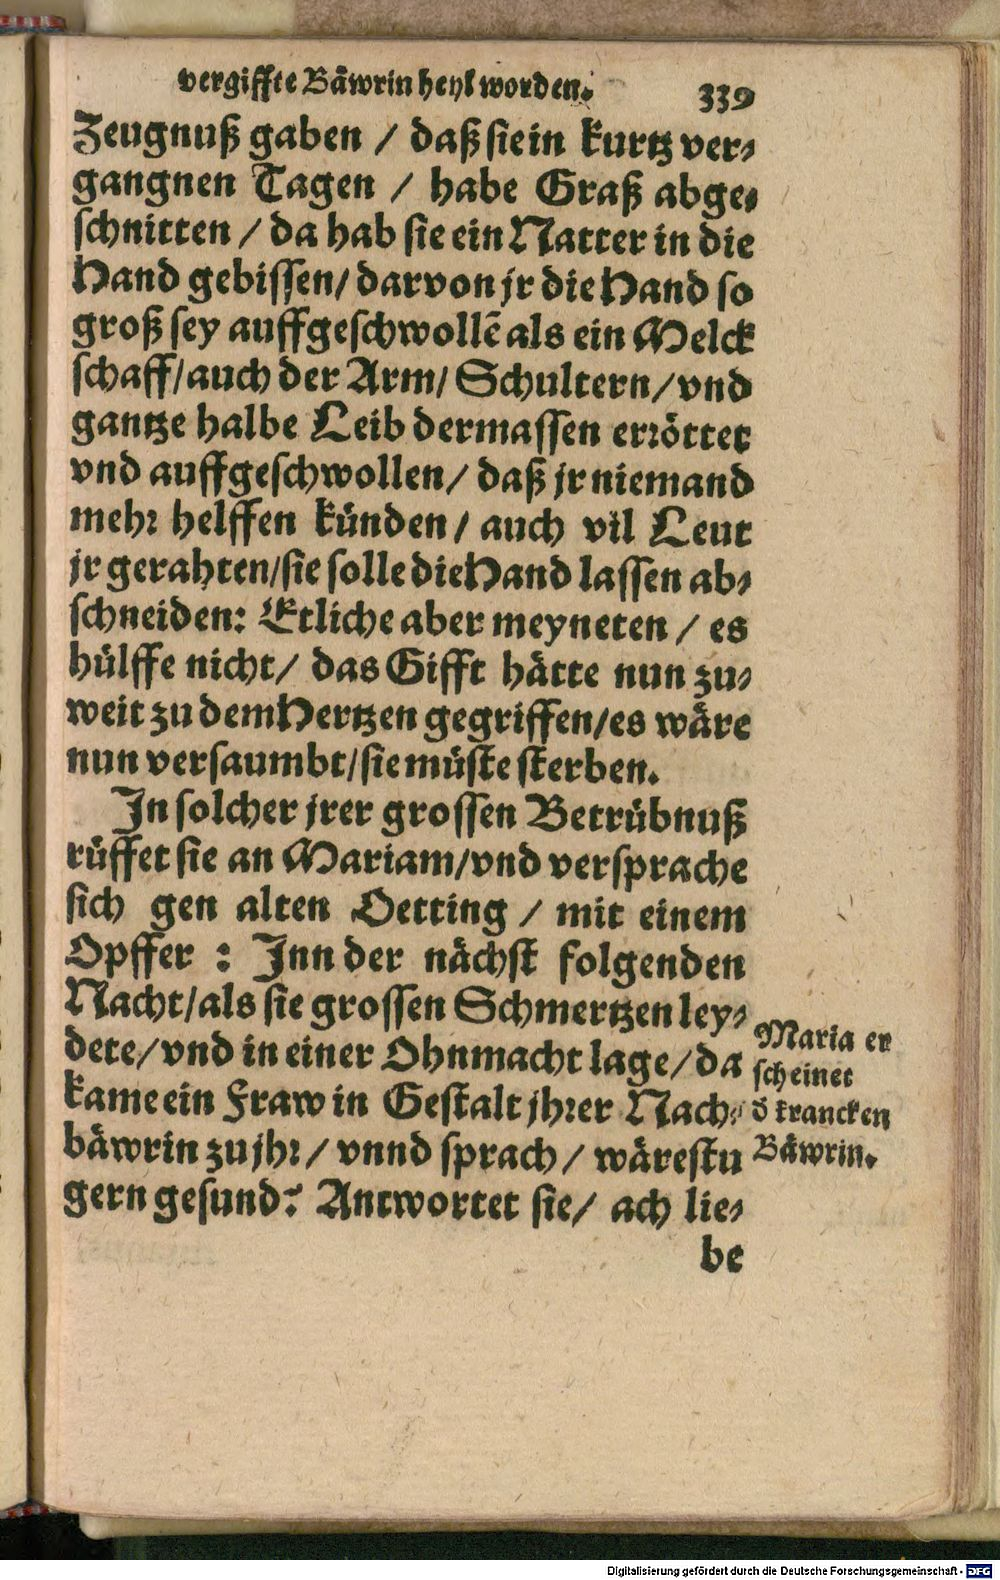 vergiffte Bäwrin heyl worden. 339
Zeugnuß gaben / daß sie in kurtz ver-
gangnen Tagen / habe Graß abge-
schnitten / da hab sie ein Natter in die
Hand gebissen/ darvon jr die Hand so
groß sey auffgeschwollẽ als ein Melck
schaff/ auch der Arm/ Schultern/ vnd
gantze halbe Leib dermassen erröttet
vnd auffgeschwollen/ daß jr niemand
mehr helffen künden/ auch vil Leut
jr gerahten/ sie solle die Hand lassen ab-
schneiden: Etliche aber meyneten / es
hülffe nicht/ das Gifft hätte nun zu-
weit zu dem Hertzen gegriffen/ es wäre
nun versaumbt/ sie müste sterben.
In solcher jrer grossen Betrübnuß
rüffet sie an Mariam/ vnd versprache
sich gen alten Oetting / mit einem
Opffer : Jnn der nächst folgenden
Nacht/ als sie grossen Schmertzen ley-
dete/ vnd in einer Ohnmacht lage/ da
kame ein Fraw in Gestalt jhrer Nach-
bäwrin zu jhr/ vnnd sprach/ wärestu
gern gesund? Antwortet sie/ ach lie-
be
Maria er
scheinet
d̕ krancken
Bäwrin.
Digitalisierung gefördert durch die Deutsche Forschungsgemeinschaft - DFG